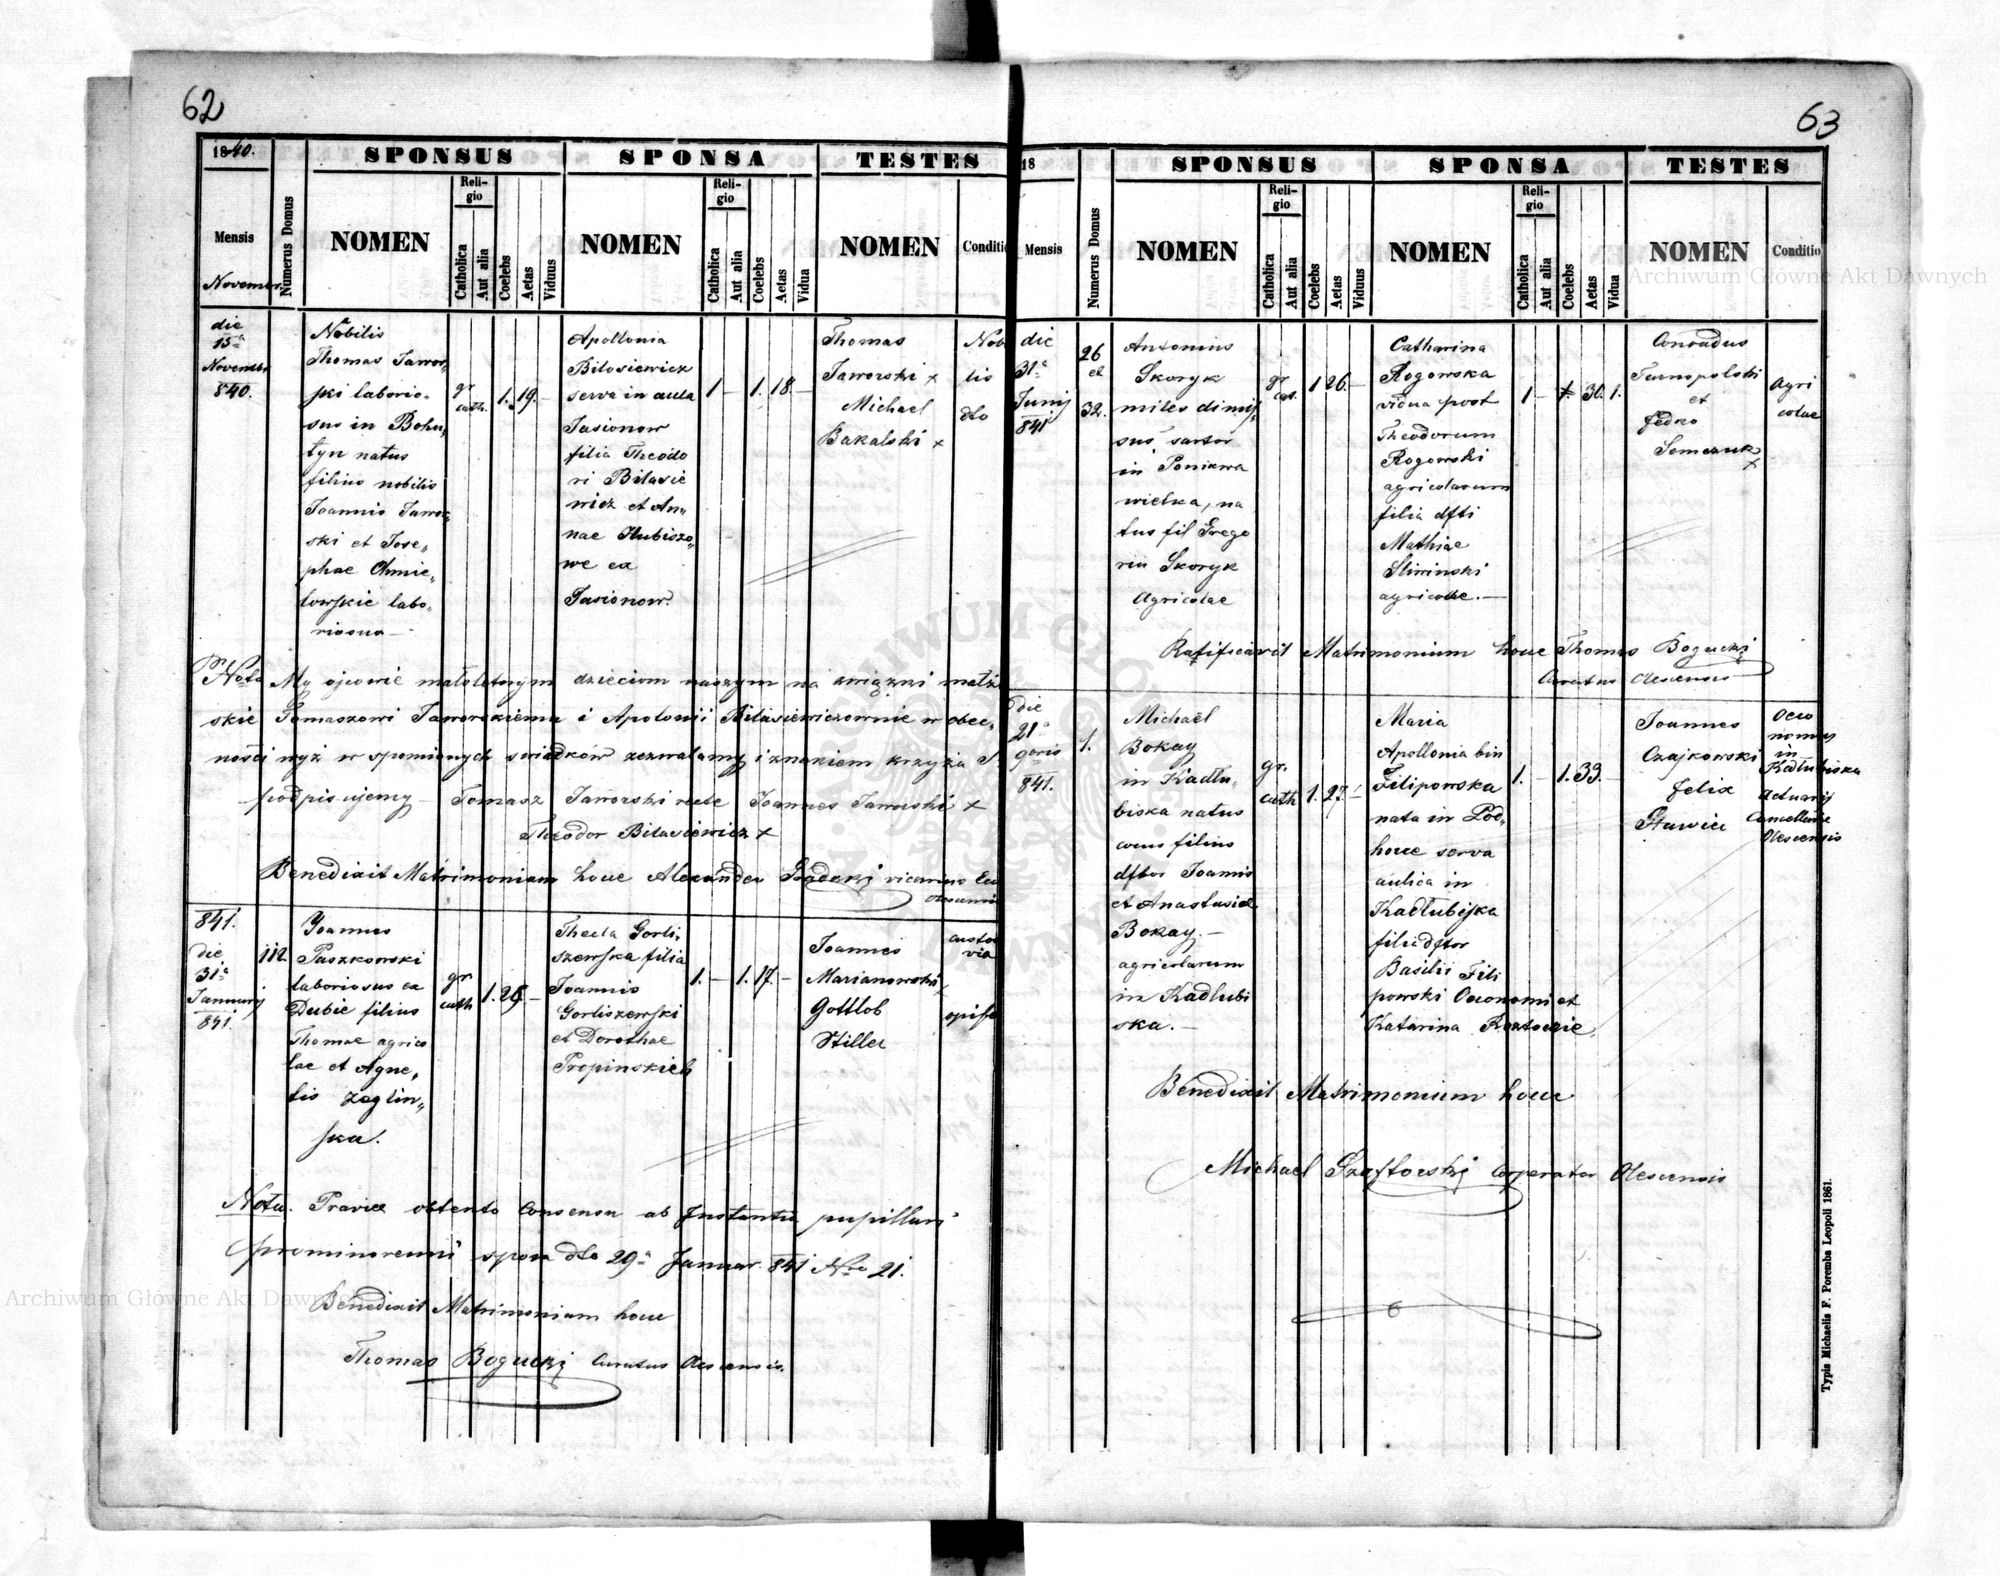 62
1840.
SPONSUS
SPONSA
TESTES
Mensis
Numerus Domus
NOMEN
Religio
Catholica
Aut alia
Coelebs
Aetas
Viduus
NOMEN
Religio
Catholica
Aut alia
Coelebs
Aetas
Vidua
NOMEN
Conditio
die
15a
Novembr
840.
Nobilis
Thomas Jawor„
ski laborio„
sus in Bohu„
tyn natus
filius nobilis
Joannis Jawor„
ski et Jose„
phae Chmie„
lowskie labo„
riosus
gr
cath.
1. 19. –
Apollonia
Bilosiewicz
serva in aula
Jasionow
filia Theodo
ri Bilasie
wicz et An„
nae Hubiszo„
we ex
Jasionow.
1 – 1. 18. –
Thomas
Jaworski x
Michael
Bakalski x
Nob
lis
dto
Nota My ojcowie małoletnym dzieciom naszym na związki małże
skie Tomaszowi Jaworskiemu i Apolonii Bilasiewiczownie w obec„
ności wyż wspomionych swiadków zezwalamy i znakiem krzyża S.
podpisujemy – Tomasz Jaworski recte Joannes Jaworski x
Theodor Bilasiewicz x
Benedixit Matrimonium hoce Alexander vicarius
841.
die
31a
Januarij
841.
112.
Joannes
Paszkowski
laboriosus ex
Dubie filius
Thomae agrico
lae et Agne„
tis Zaglin„
ska.
gr
cath
1. 25. –
Thecla Gorli„
szewska filia
Joannis
Gorliszewski
et Dorothae
Propinskich
1. – 1. 17. –
Joannes
Marianowski
Gottlob
Stiller
Nota. Pravia obtento Consensu ab Instantia pupillari
pro minorenni sponsa dto 29a Januar. 841 Nro 21.
Benedixit Matrimonium hoce
Thomas Bogucki Curatus Olescensis.
63
18
SPONSUS
SPONSA
TESTES
Mensis
Numerus Domus
NOMEN
Religio
Catholica
Aut alia
Coelebs
Aetas
Viduus
NOMEN
Religio
Catholica
Aut alia
Coelebs
Aetas
Vidua
NOMEN
Conditio
die
31a
Junij
841
26
et
32.
Antonius
Skoryk
miles dimis„
sus sartor
in Ponikwa
wielka, na
tus fil Grego
rii Skoryk
Agricolae
gr
cat.
1 26. –
Catharina
Rogowska
vidua post
Theodorum
Rogowski
agricolarum
filia dfti
Mathiae
Sliwinski
agricolae. –
1 – 30. 1.
Conradus
Tarnopolski
et
Fedko
Semczuk
x
Agri
colae
Ratificavit Matrimonium hoce Thomas Bogucki
Curatus Olescensis
die
21a
9bris
841.
1.
Michaël
Bokay
in Kadłu„
biska natus
filius
dftor Joannis
et Anastasie
Bokay. –
agricolarum
in Kadlubi
ska. –
gr.
cath
1. 27. –
Maria
Apollonia bin
Filipowska
nata in Pod„
horce serva
aulica in
Kadłubiska
filia dftor
Basilii Fili
powski Oeconomi et
Katarina Roztoczie
1. – 1. 33. –
Joannes
Czajkowski
Felix
Oeco
nomus
in
Kadłubiska
Actuarij
Cancellarie
Olescensis
Benedixit Matrimonium hoce
Michael Cooperator Olescensis
Typis Michaelis F. Poremba Leopoli 1861.
Archiwum Główne Akt Dawnych
Archiwum Główne Akt Dawnych